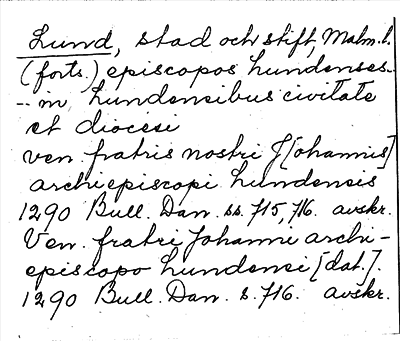 Lund, stad och stift, Malm.l.
(forts.) episcopos lundenses
-- in lundensibus civitate
et diocesi
ven. fratris nostri J[ohannis]
archiepiscopi lundensis
1290 Bull. Dan. ss. 715, 716. avskr.
Ven. fratri Johanni archi-
episcopo lundensi [dat.].
1290 Bull. Dan. s. 716. avskr.